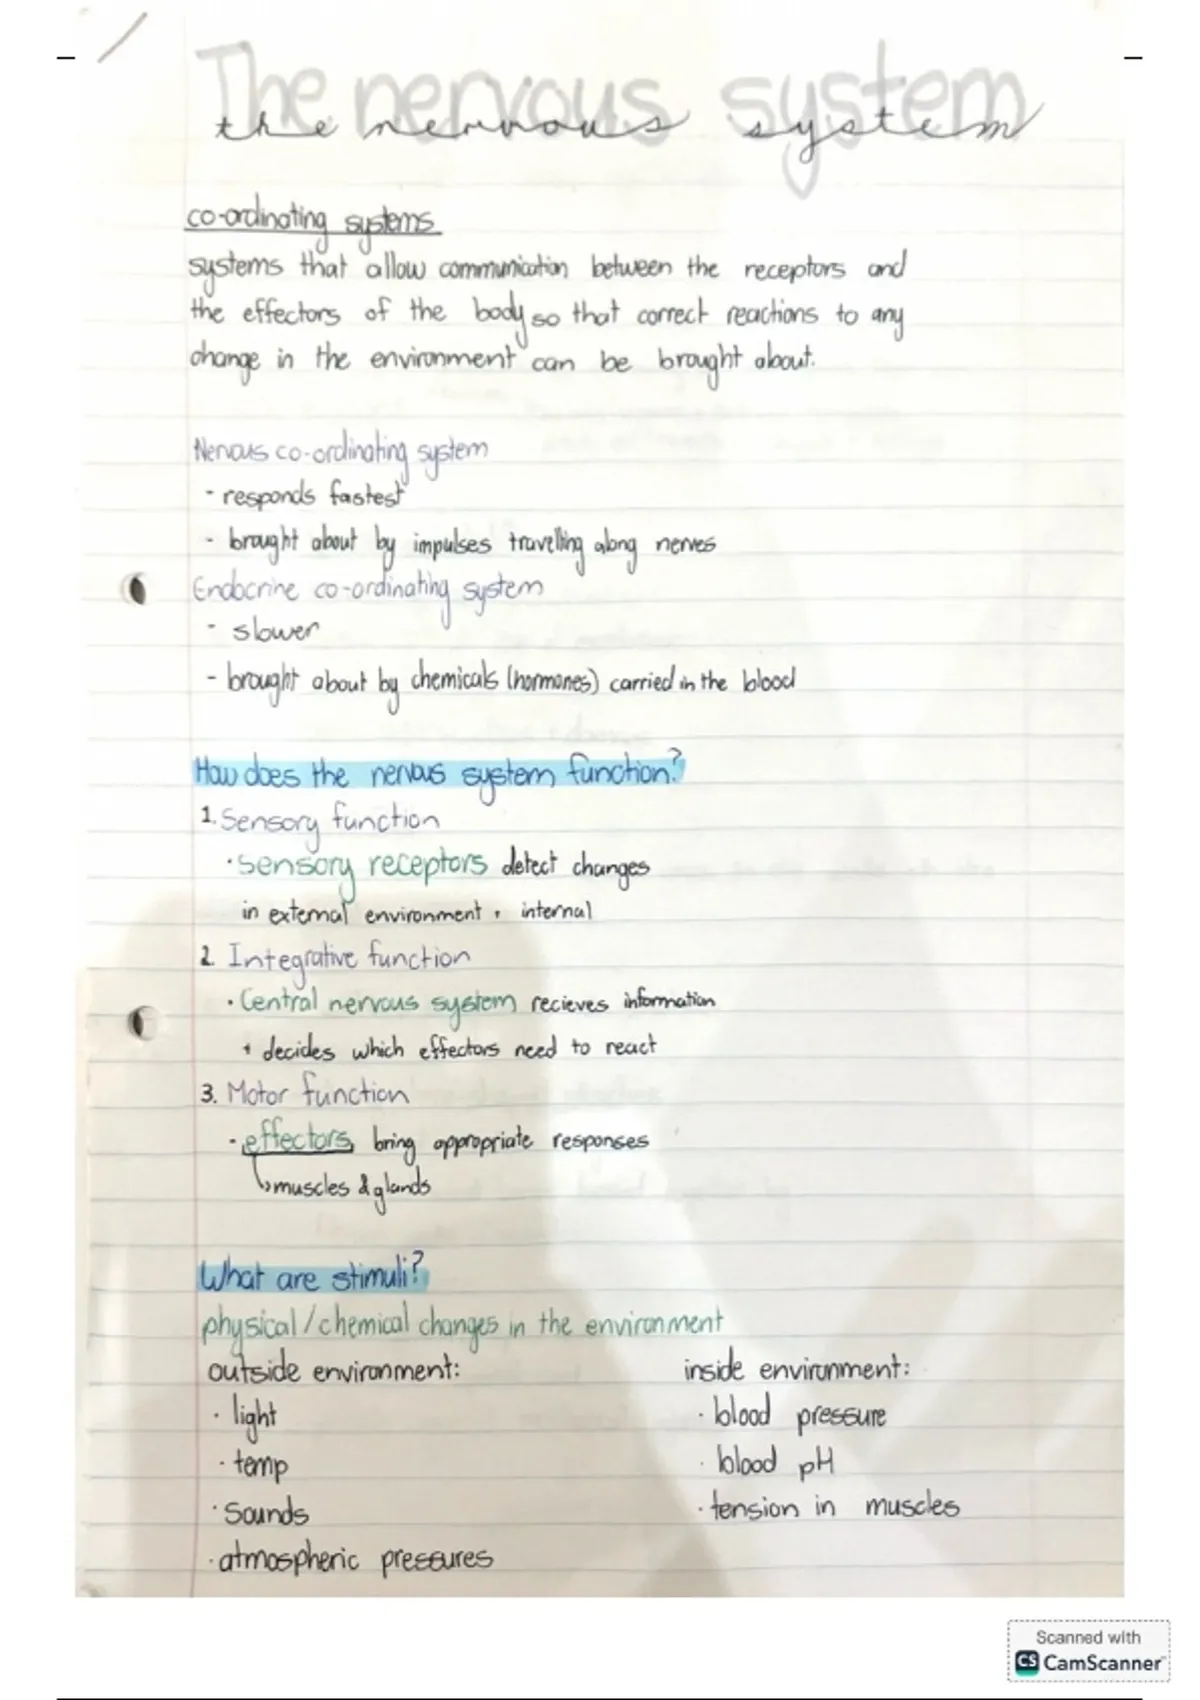 The nervous system
the nervous system
co-ordinating systems
systems that allow communication between the receptors and
the effectors of the body so that correct reactions to any
change in the environment can be brought about.
Nervous co-ordinating system
- responds fastest
- brought about by impulses travelling along nerves
Endocrine co-ordinating system
- slower
- brought about by chemicals (hormones) carried in the blood
How does the nervous system function?
1. Sensory function
· sensory receptors detect changes
in external environment + internal
2. Integrative function
· Central nervous system recieves information
+ decides which effectors need to react
3. Motor function
· effectors bring appropriate responses
↳ muscles & glands
What are stimuli?
physical/chemical changes in the environment
outside environment:
· light
· temp
· Sounds
· atmospheric pressures
inside environment:
· blood pressure
· blood pH
· tension in muscles
Scanned with
CS CamScanner